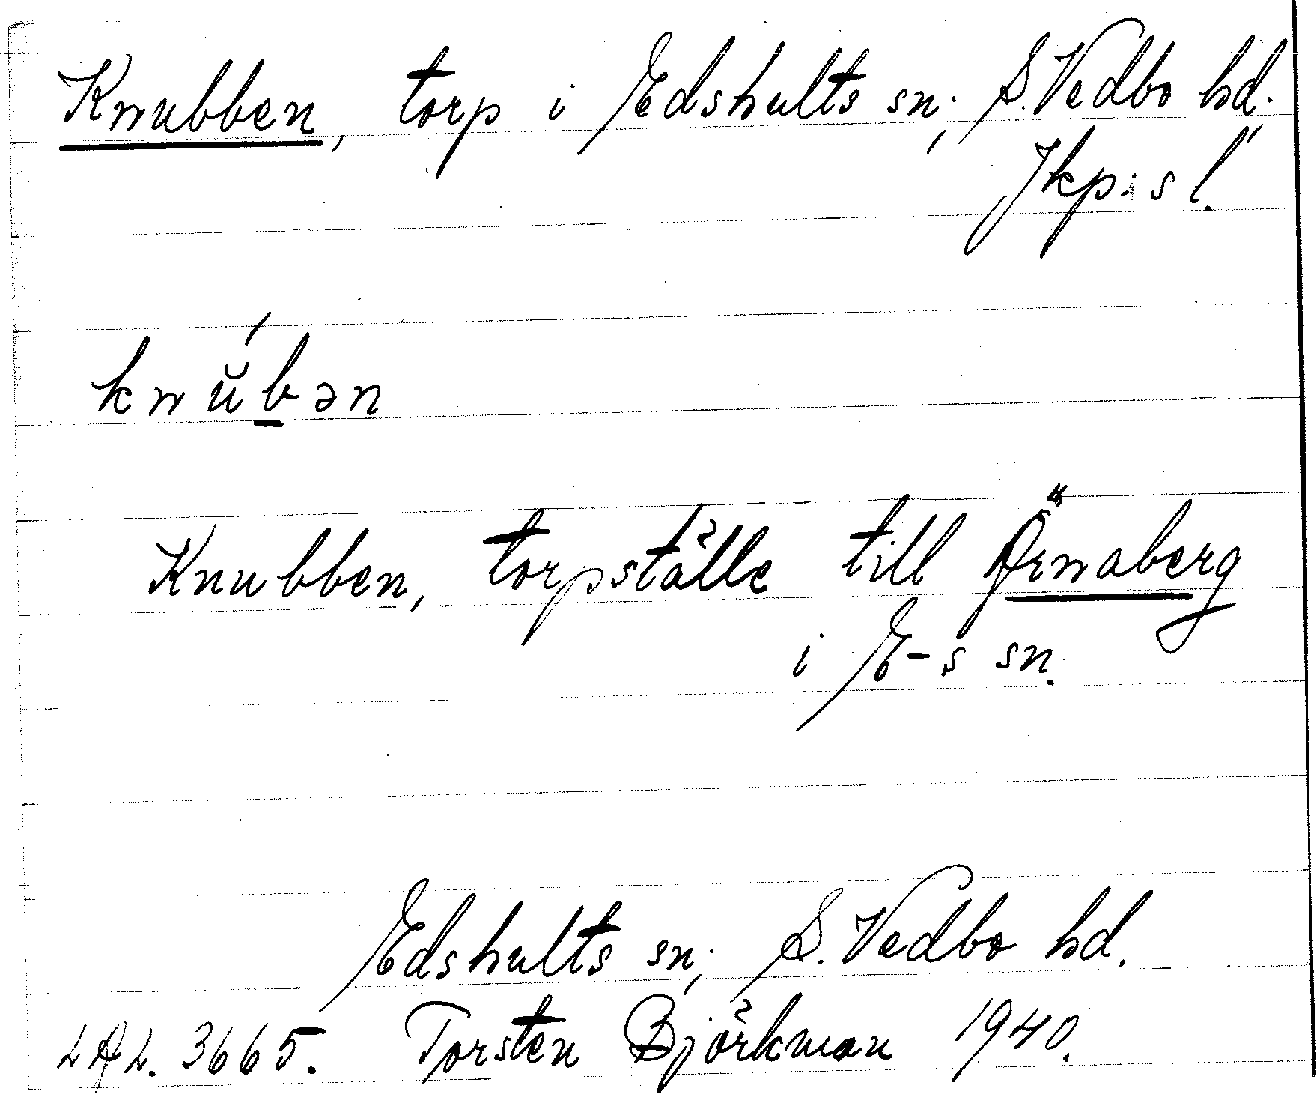 Knubben, torp i Edshults sn; S. Vedbo hd.
Jkp:s l.
knŭ́bən
Knubben, torpställe till Örnaberg
i E-s sn.
Edshults sn; S. Vedbo hd.
LAL. 3665. Torsten Björkman 1940.